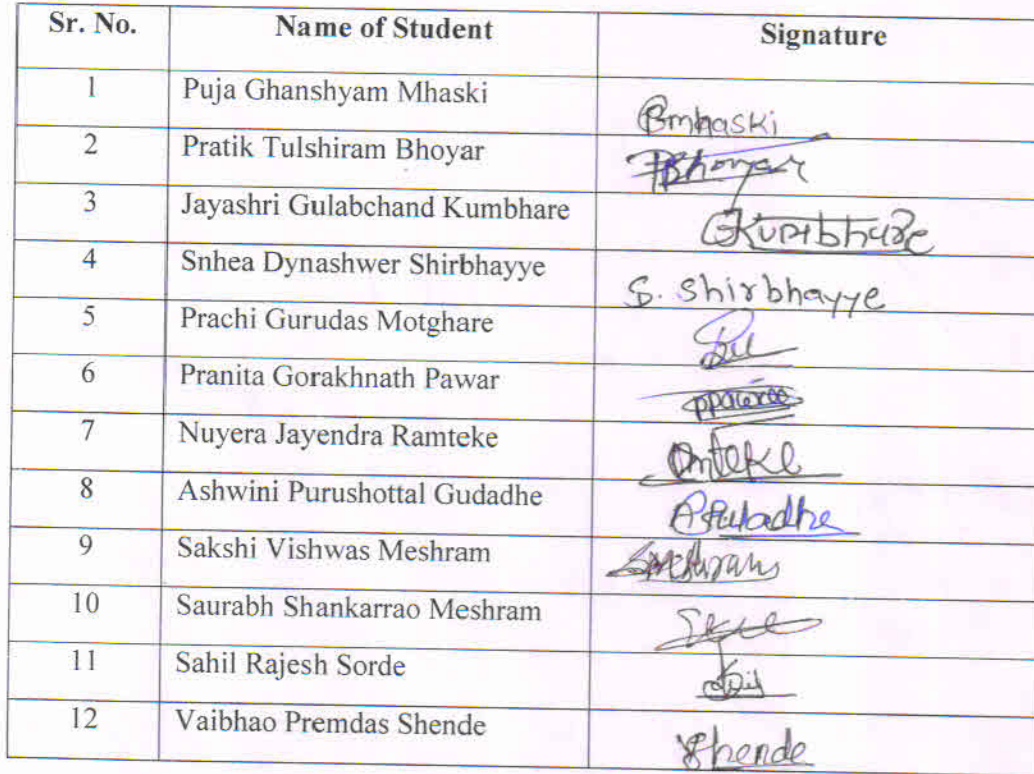 Sr. No. Name of Student Signature
1 Puja Ghanshyam Mhaski Pmhaski
2 Pratik Tulshiram Bhoyar PBhoyar
3 Jayashri Gulabchand Kumbhare GKumbhare
4 Snhea Dynashwer Shirbhayye S. Shirbhayye
5 Prachi Gurudas Motghare
6 Pranita Gorakhnath Pawar
7 Nuyera Jayendra Ramteke
8 Ashwini Purushottal Gudadhe
9 Sakshi Vishwas Meshram Smeshram
10 Saurabh Shankarrao Meshram
11 Sahil Rajesh Sorde
12 Vaibhao Premdas Shende Shende